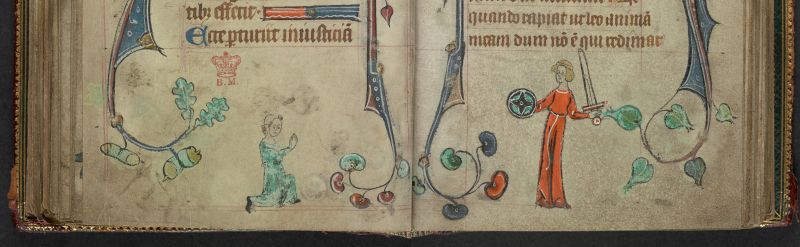 tibꝫ effecit.
Ecce ꝑturiit iniusticiā
B. M.
quando rapiat ut leo animā
meam dum nō ē qui redimat